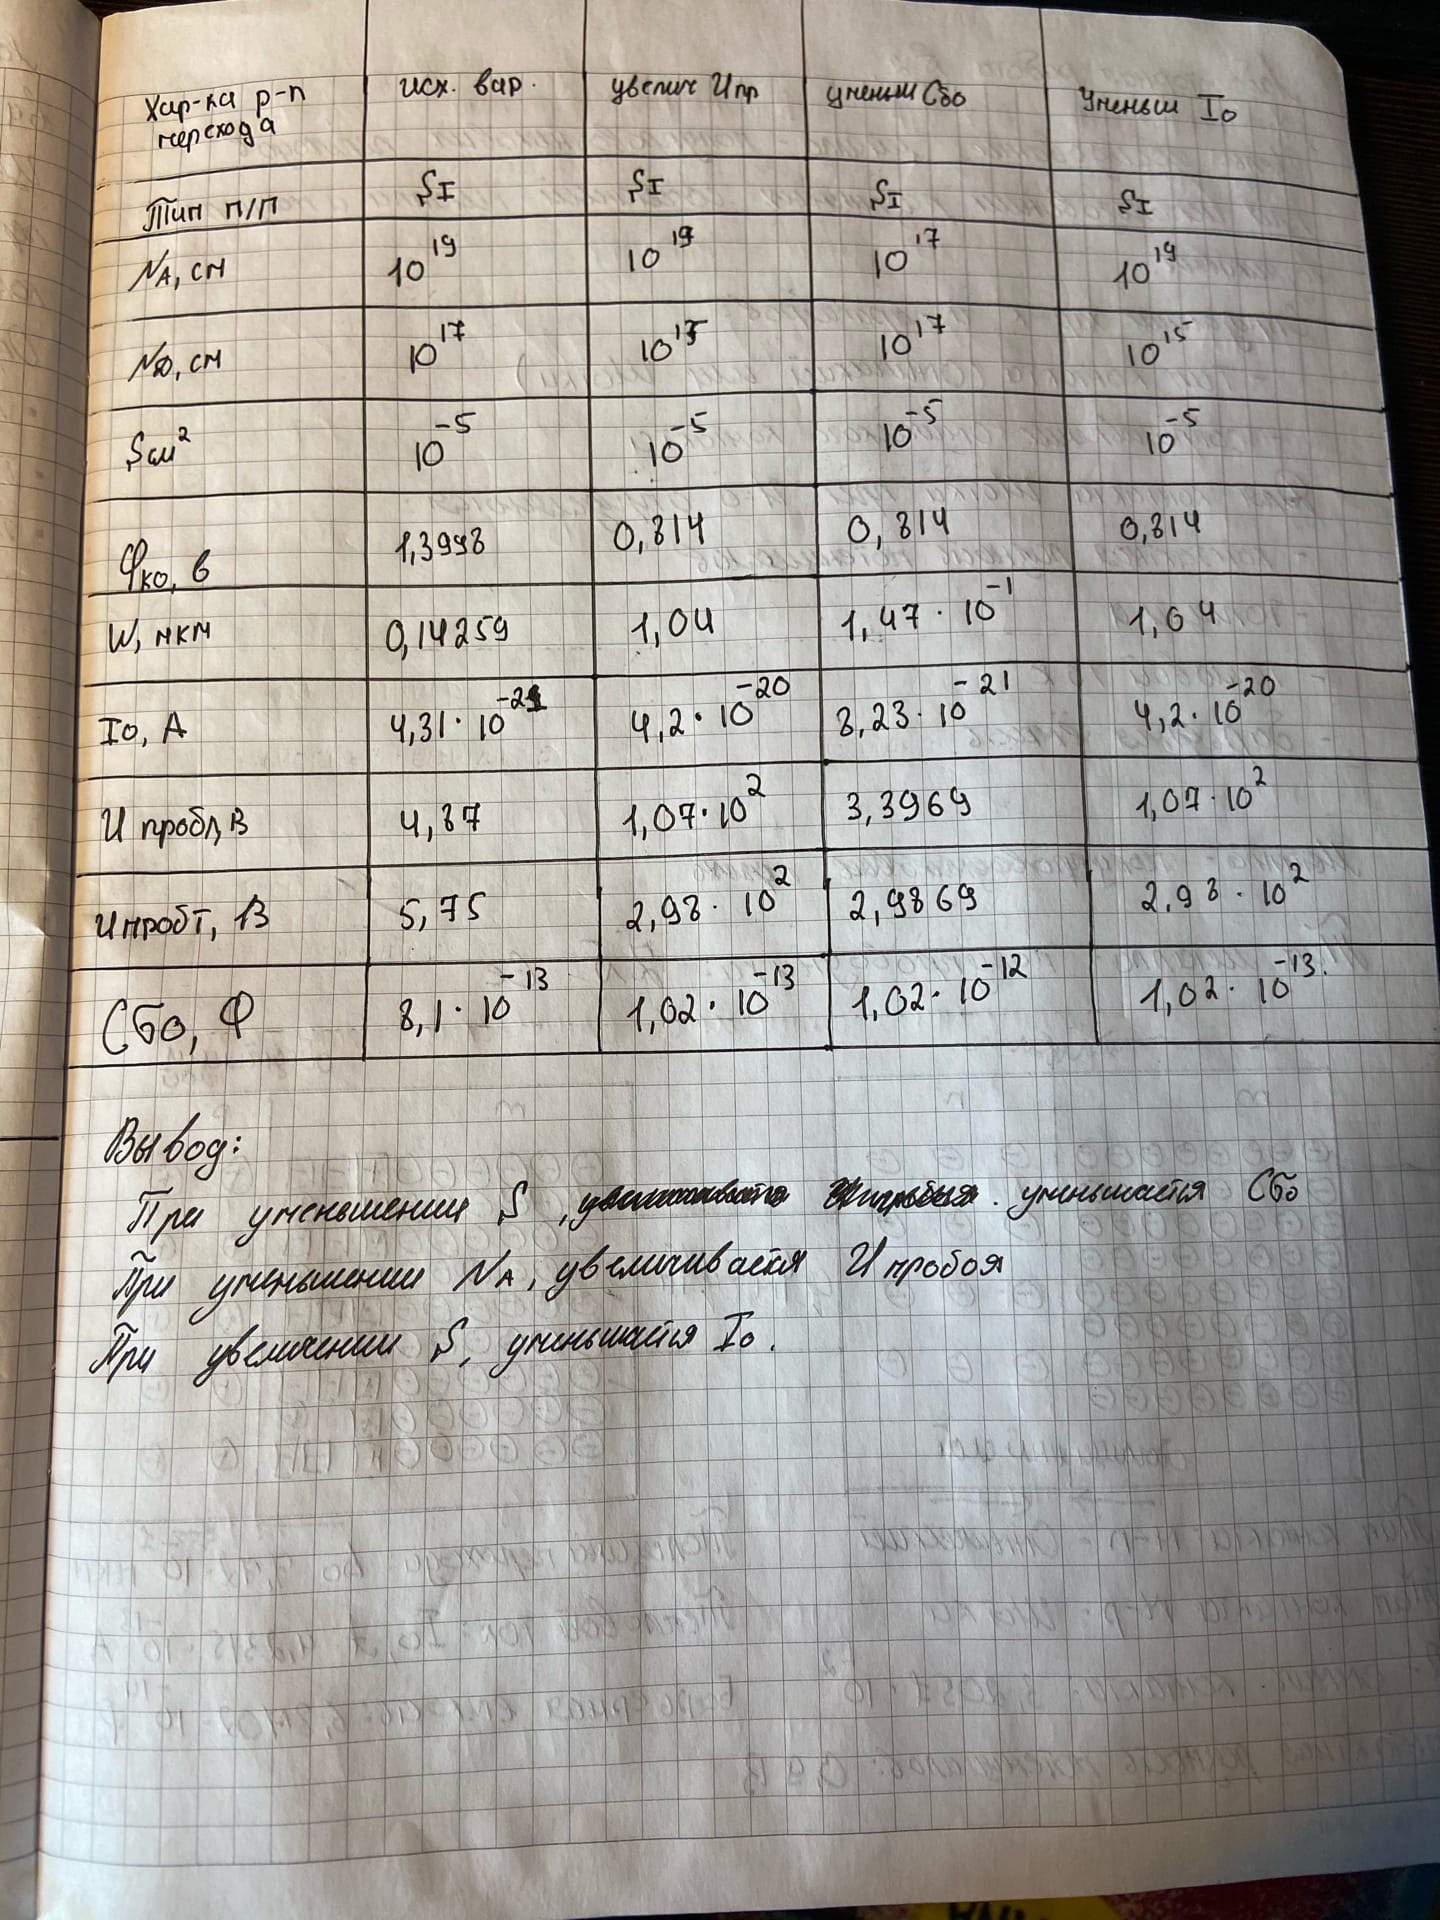 Хар-ка р-п перехода | исх. вар. | увелич Uпр | уменьш Сбо | Уменьш Io
Тип п/п | SI | SI | SI | SI
NA, см | 10^19 | 10^19 | 10^17 | 10^19
ND, см | 10^17 | 10^15 | 10^17 | 10^15
Sсм² | 10^-5 | 10^-5 | 10^-5 | 10^-5
φко, в | 1,3998 | 0,814 | 0,814 | 0,814
W, мкм | 0,14259 | 1,04 | 1,47 · 10^-1 | 1,04
Io, А | 4,31 · 10^-21 | 4,2 · 10^-20 | 8,23 · 10^-21 | 4,2 · 10^-20
U пробл, В | 4,87 | 1,07 · 10^2 | 3,3969 | 1,07 · 10^2
Uпробт, В | 5,75 | 2,98 · 10^2 | 2,9869 | 2,98 · 10^2
Сбо, Ф | 8,1 · 10^-13 | 1,02 · 10^-13 | 1,02 · 10^-12 | 1,02 · 10^-13.
Вывод:
При уменьшении S, уменьшается Сбо
При уменьшении NA, увеличивается U пробоя
При увеличении S, уменьшается Io.